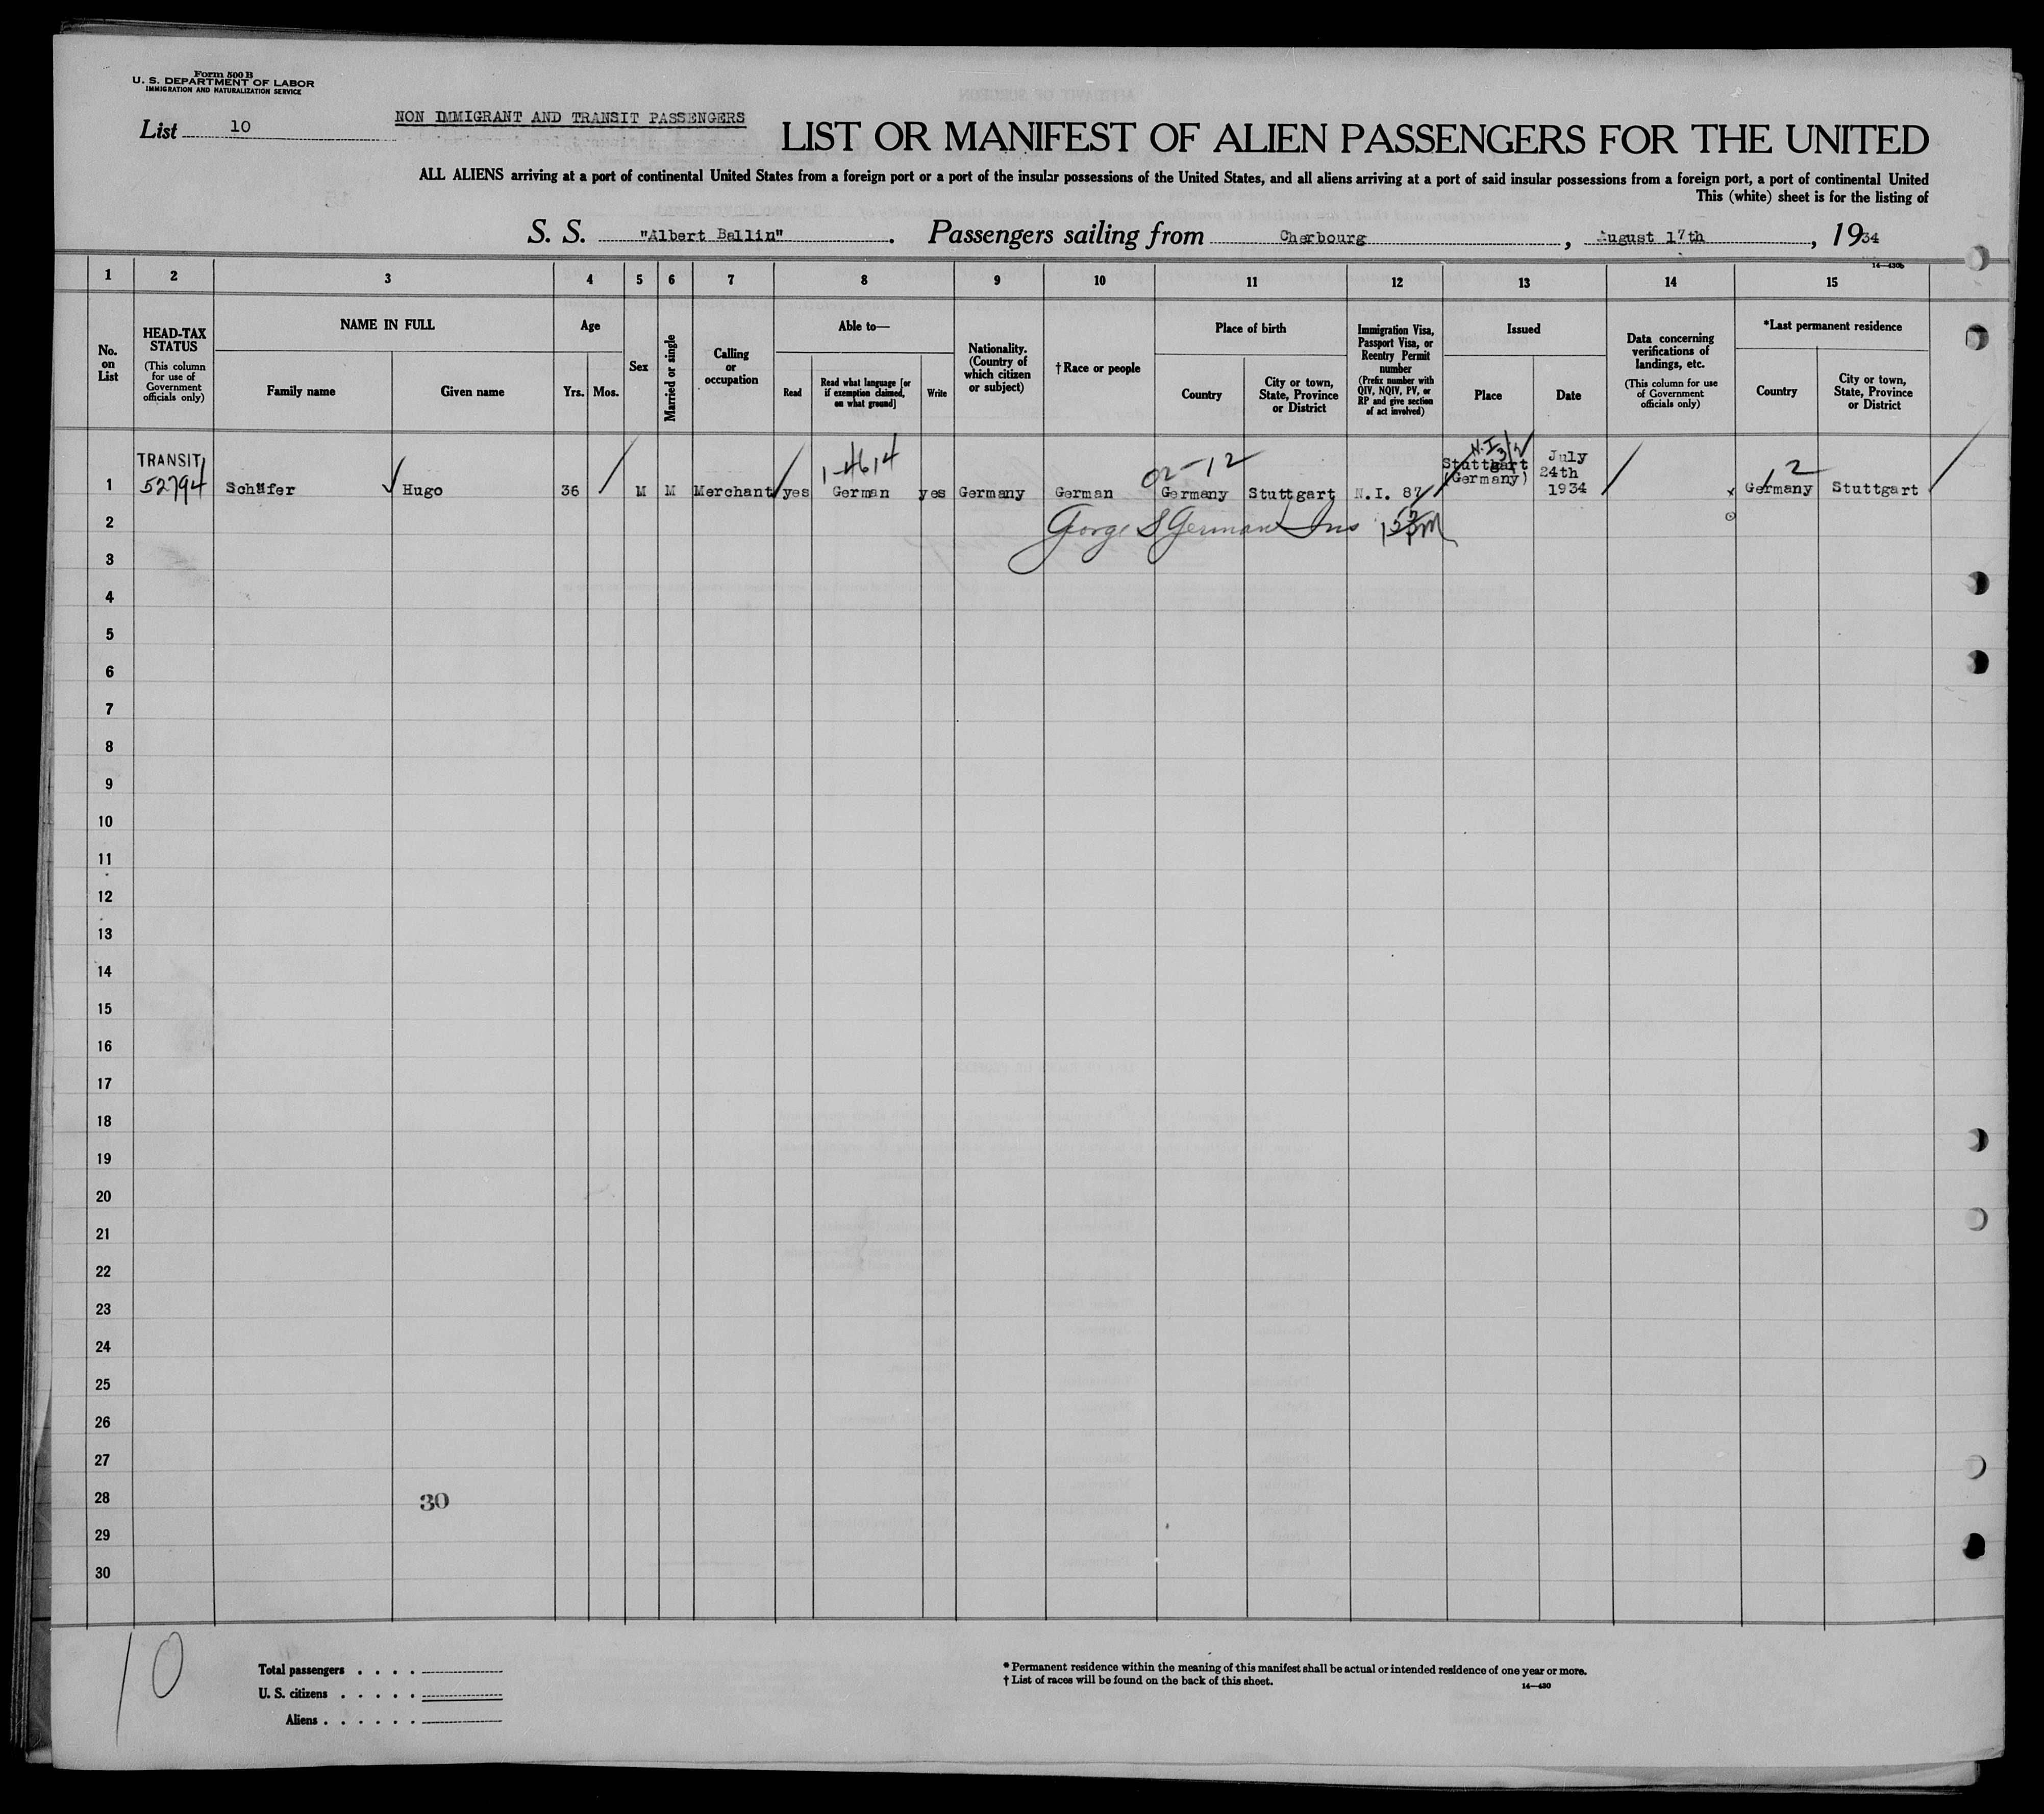 Form 500 B
U. S. DEPARTMENT OF LABOR
IMMIGRATION AND NATURALIZATION SERVICE
List 10
NON IMMIGRANT AND TRANSIT PASSENGERS
LIST OR MANIFEST OF ALIEN PASSENGERS FOR THE UNITED
ALL ALIENS arriving at a port of continental United States from a foreign port or a port of the insular possessions of the United States, and all aliens arriving at a port of said insular possessions from a foreign port, a port of continental United
This (white) sheet is for the listing of
S. S. "Albert Ballin". Passengers sailing from Cherbourg, August 17th, 1934
14—430b
1 2 3 4 5 6 7 8 9 10 11 12 13 14 15
No. on List
HEAD-TAX STATUS
(This column for use of Government officials only)
NAME IN FULL
Family name
Given name
Age
Yrs.
Mos.
Sex
Married or single
Calling or occupation
Able to—
Read
Read what language [or if exemption claimed, on what ground]
Write
Nationality. (Country of which citizen or subject)
†Race or people
Place of birth
Country
City or town, State, Province or District
Immigration Visa, Passport Visa, or Reentry Permit number
(Prefix number with QIV, NQIV, PV, or RP and give section of act involved)
Issued
Place
Date
Data concerning verifications of landings, etc.
(This column for use of Government officials only)
*Last permanent residence
Country
City or town, State, Province or District
1 TRANSIT 52794 Schäfer Hugo 36 M M Merchant yes German yes Germany German Germany Stuttgart N.I. 87 Stuttgart (Germany) July 24th 1934 Germany Stuttgart
1-4614
02-12
N.I. 3/2
12
2 George S German Ins
3
4
5
6
7
8
9
10
11
12
13
14
15
16
17
18
19
20
21
22
23
24
25
26
27
28 30
29
30
10
Total passengers
U. S. citizens
Aliens
* Permanent residence within the meaning of this manifest shall be actual or intended residence of one year or more.
† List of races will be found on the back of this sheet.
14—430